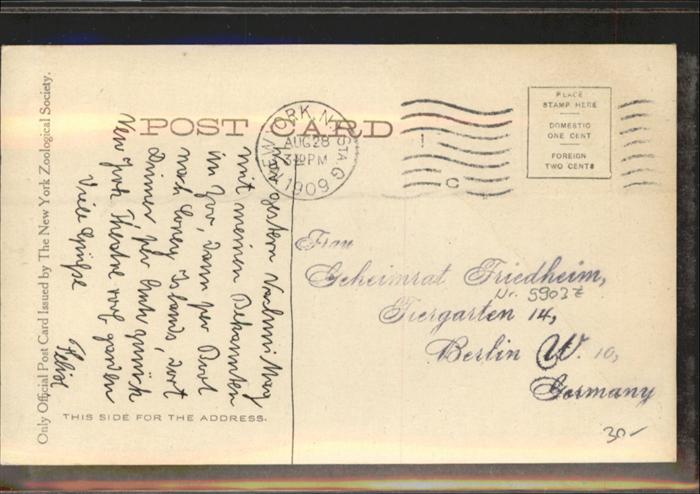 Only Official Post Card Issued by The New York Zoological Society.
POST CARD
NEW YORK, N.Y. STA G
AUG 28
3-PM
1909
C
PLACE
STAMP HERE
DOMESTIC
ONE CENT
FOREIGN
TWO CENTS
War gestern Nachmittag
mit meinen Bekannten
im Zoo, dann per
nach Coney Island, dort
Dinner, per zurück
New York Theatre roof garden
Viele Grüße
Felix
Frau
Geheimrat Friedheim,
Nr. 5903z
Tiergarten 14,
Berlin W. 10,
Germany
THIS SIDE FOR THE ADDRESS.
30-